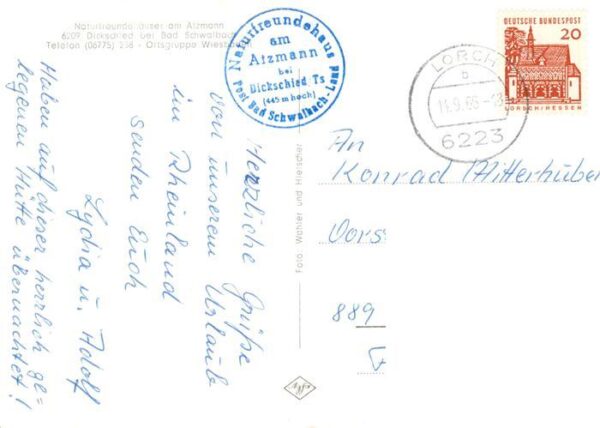 Naturfreundehäuser am Atzmann
6209 Dickschied bei Bad Schwalbach
Telefon (06775) 238 - Ortsgruppe Wiesb
Naturfreundehaus
am
Atzmann
bei
Dickschied Ts
(445 m hoch)
Post Bad Schwalbach-Land
DEUTSCHE BUNDESPOST
20
LORSCH/HESSEN
LORCH
b
6223
Herzliche Grüße
von unserem Urlaub
im Rheinland
senden Euch
Lydia u. Adolf
Haben auf dieser herrlich ge=
legenen Hütte übernachtet!
Foto: Wähler und Hielscher
An
Konrad Mitterhuber
Vors
889